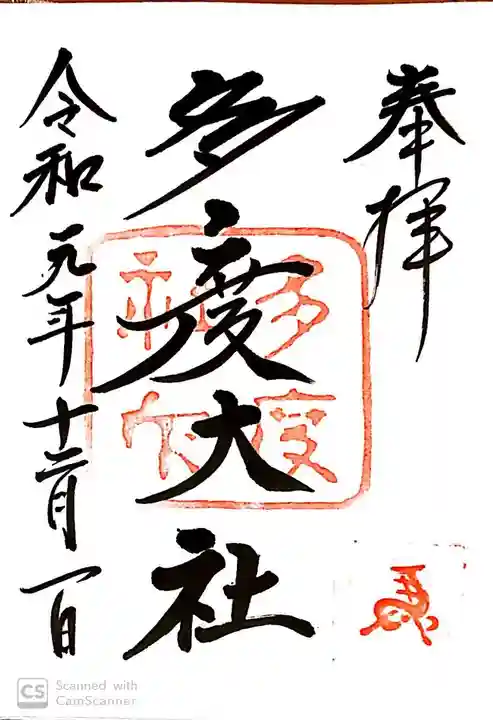 奉拝
多度大社
多度
社印
令和元年十二月一日
CS Scanned with
CamScanner